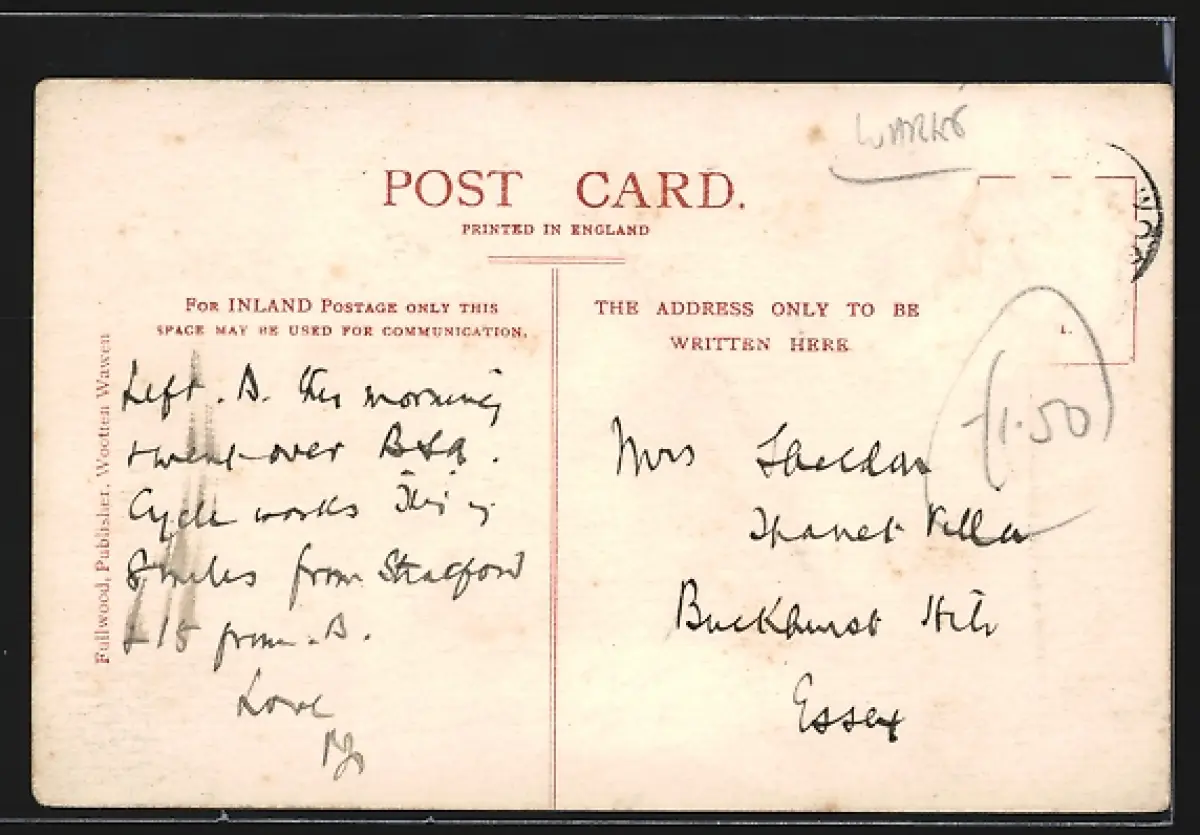 WARKS
POST CARD.
PRINTED IN ENGLAND
FOR INLAND POSTAGE ONLY THIS
SPACE MAY BE USED FOR COMMUNICATION.
THE ADDRESS ONLY TO BE
WRITTEN HERE
Fullwood, Publisher, Wootten Wawen
Left . B. this morning
+ went over BSA .
Cycle works This is
8 miles from Stratford
+ 15 from . B .
Love
1.50
Mrs Sheldon
Thanet Villa
Buckhurst Hill
Essex